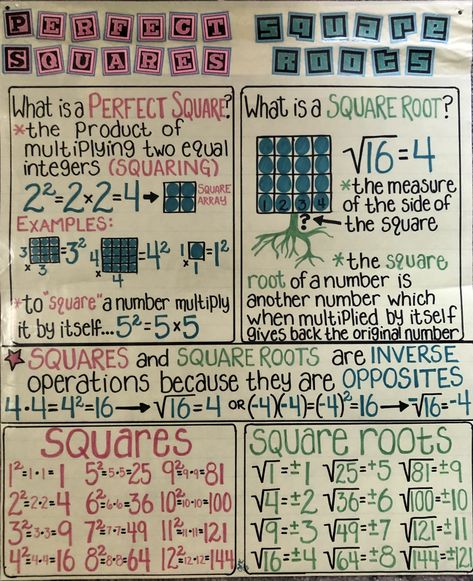 PERFECT SQUARES
SQUARE ROOTS
What is a PERFECT SQUARE?
*the product of
multiplying two equal
integers (SQUARING)
2²=2×2=4→ SQUARE ARRAY
EXAMPLES:
3 ×3 =3² 4 ×4 =4² 1 ×1 =1²
*to "square" a number multiply
it by itself...5²=5×5
What is a SQUARE ROOT?
√16=4
1 2 3 4
?
*the measure
of the side of
the square
*the square
root of a number is
another number which
when multiplied by itself
gives back the original number
★SQUARES and SQUARE ROOTS are INVERSE
operations because they are OPPOSITES
4·4=4²=16→√16=4 OR (-4)(-4)=(-4)²=16→-√16=-4
SQUARES
1²=1·1=1 5²=5·5=25 9²=9·9=81
2²=2·2=4 6²=6·6=36 10²=10·10=100
3²=3·3=9 7²=7·7=49 11²=11·11=121
4²=4·4=16 8²=8·8=64 12²=12·12=144
square roots
√1=±1 √25=±5 √81=±9
√4=±2 √36=±6 √100=±10
√9=±3 √49=±7 √121=±11
√16=±4 √64=±8 √144=±12